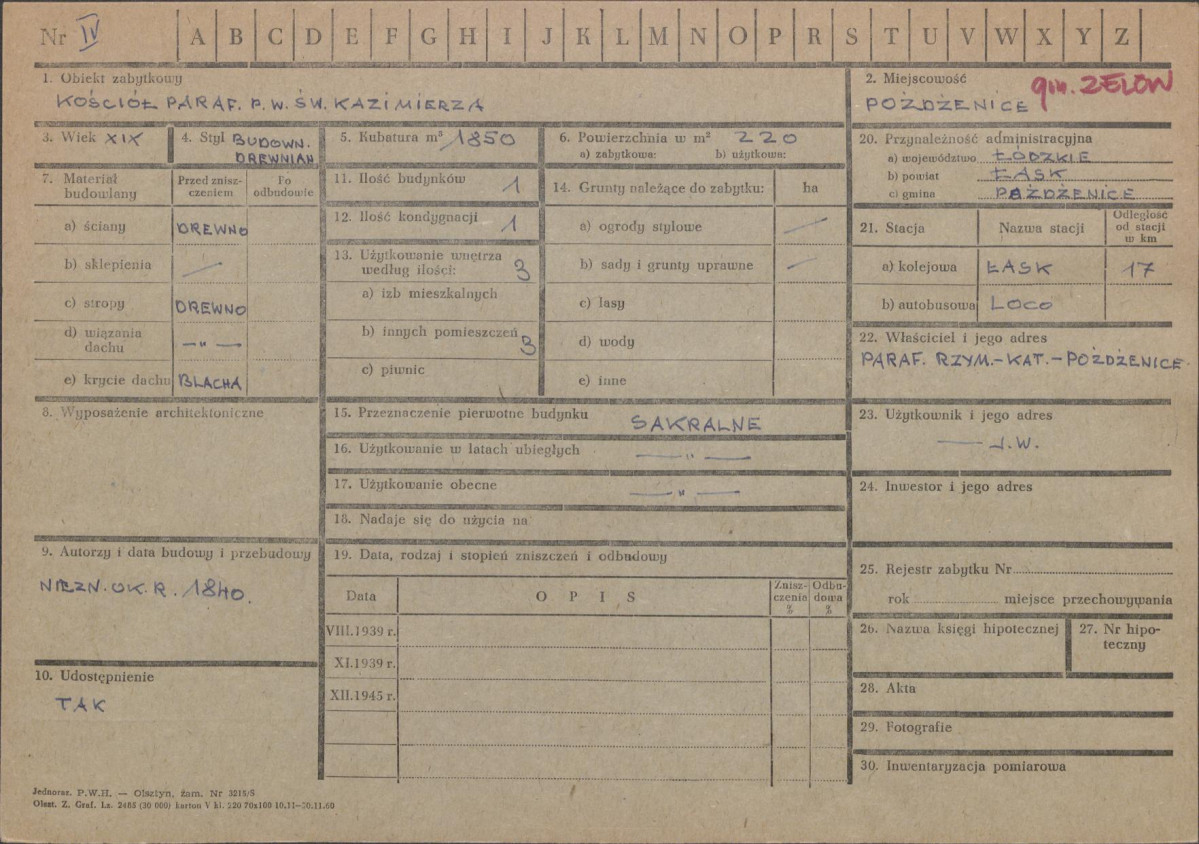 Nr IV A B C D E F G H I J K L M N O P R S T U V W X Y Z
1. Obiekt zabytkowy
KOŚCIÓŁ PARAF. P.W. ŚW. KAZIMIERZA
2. Miejscowość gm. ZELÓW
POŻDŻENICE
3. Wiek XIX
4. Styl BUDOWN.
DREWNIAN
5. Kubatura m³ 1850
6. Powierzchnia w m² 220
a) zabytkowa: b) użytkowa:
7. Materiał
budowlany
Przed znisz-
czeniem
Po
odbudowie
a) ściany DREWNO
b) sklepienia —
c) stropy DREWNO
d) wiązania
dachu — „ —
e) krycie dachu BLACHA
8. Wyposażenie architektoniczne
9. Autorzy i data budowy i przebudowy
NIEZN. OK. R. 1840.
10. Udostępnienie
TAK
11. Ilość budynków 1
12. Ilość kondygnacji 1
13. Użytkowanie wnętrza
według ilości: 3
a) izb mieszkalnych
b) innych pomieszczeń 3
c) piwnic
14. Grunty należące do zabytku: ha
a) ogrody stylowe —
b) sady i grunty uprawne —
c) lasy
d) wody
e) inne
15. Przeznaczenie pierwotne budynku SAKRALNE
16. Użytkowanie w latach ubiegłych — „ —
17. Użytkowanie obecne — „ —
18. Nadaje się do użycia na
19. Data, rodzaj i stopień zniszczeń i odbudowy
Data
O P I S
Znisz-
czenia
%
Odbu-
dowa
%
VIII.1939 r.
XI.1939 r.
XII.1945 r.
20. Przynależność administracyjna
a) województwo ŁÓDZKIE
b) powiat ŁASK
c) gmina POŻDŻENICE
21. Stacja
Nazwa stacji
Odległość
od stacji
w km
a) kolejowa ŁASK 17
b) autobusowa LOCO
22. Właściciel i jego adres
PARAF. RZYM.-KAT.-POŻDŻENICE
23. Użytkownik i jego adres
— J.W.
24. Inwestor i jego adres
25. Rejestr zabytku Nr
rok miejsce przechowywania
26. Nazwa księgi hipotecznej
27. Nr hipo-
teczny
28. Akta
29. Fotografie
30. Inwentaryzacja pomiarowa
Jednoraz. P.W.H. — Olsztyn, zam. Nr 3215/S
Olszt. Z. Graf. Lz. 2485 (30 000) karton V kl. 220 70x100 10.11—30.11.60